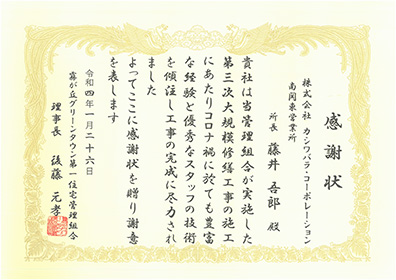 感謝状
株式会社 カシワバラ・コーポレーション
南関東営業所
所長 藤井 吾郎 殿
貴社は当管理組合が実施した
第三次大規模修繕工事の施工
にあたりコロナ禍に於ても豊富
な経験と優秀なスタッフの技術
を傾注し工事の完成に尽力され
ました
よってここに感謝状を贈り謝意
を表します
令和四年一月二十六日
霧が丘グリーンタウン第一住宅管理組合
理事長 後藤 元孝